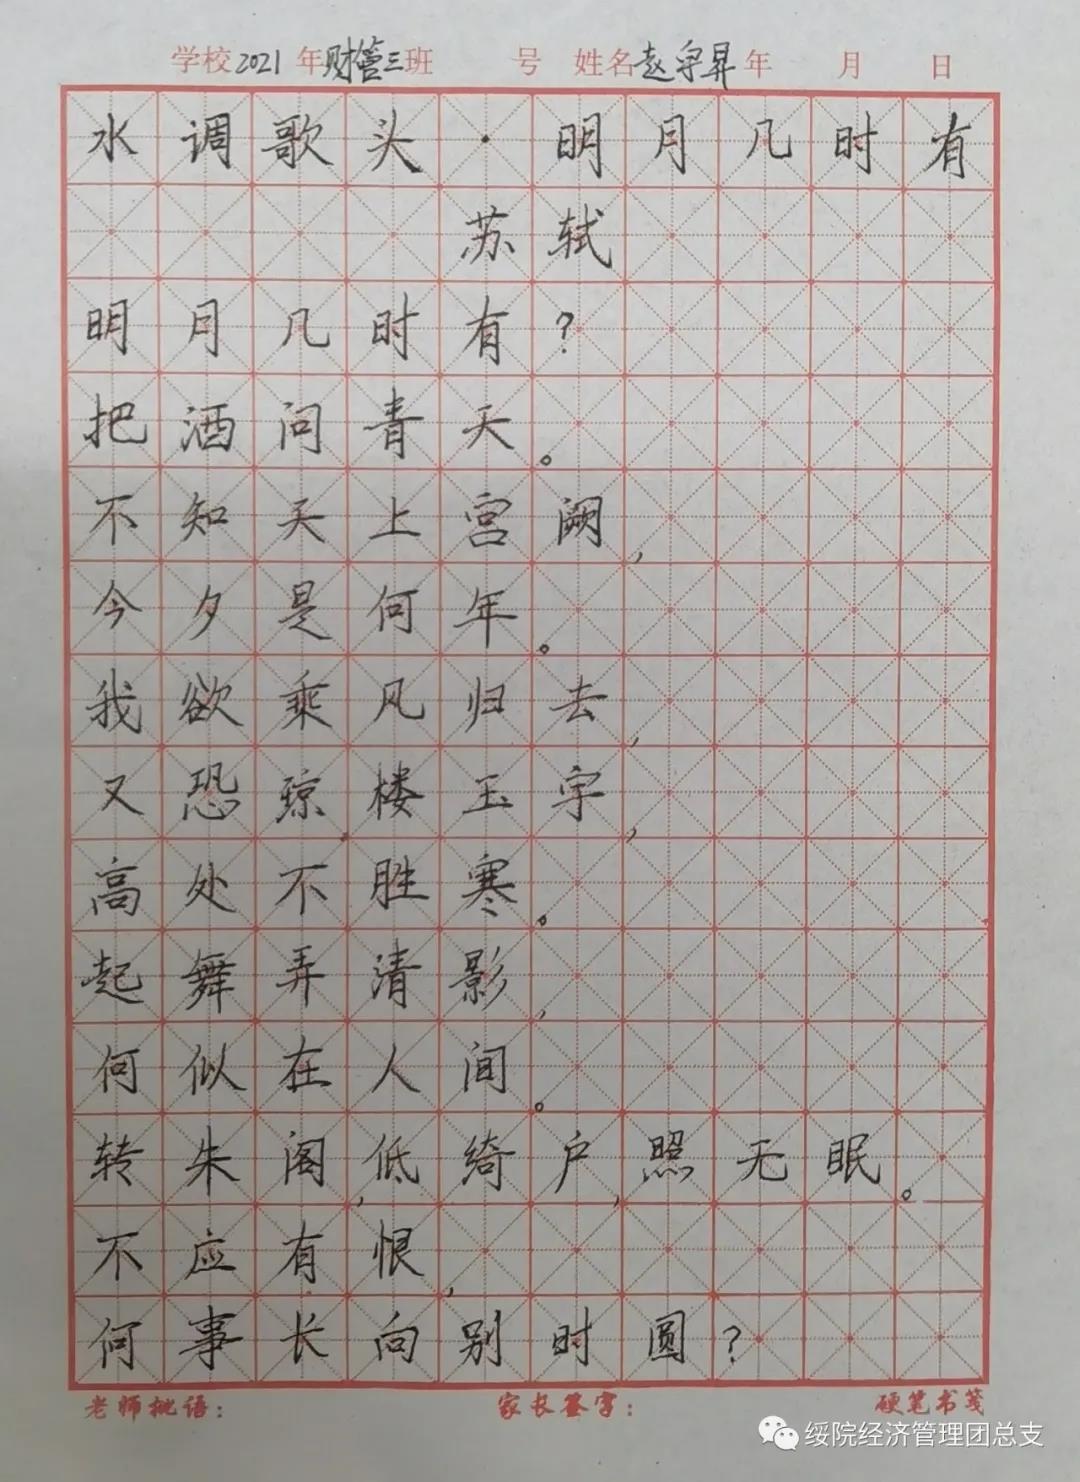 学校2021年财管三班 号 姓名赵守昇年 月 日
水调歌头·明月几时有
苏轼
明月几时有?
把酒问青天。
不知天上宫阙,
今夕是何年。
我欲乘风归去,
又恐琼楼玉宇,
高处不胜寒。
起舞弄清影,
何似在人间。
转朱阁,低绮户,照无眠。
不应有恨,
何事长向别时圆?
老师批语: 家长签字: 硬笔书笺
绥院经济管理团总支